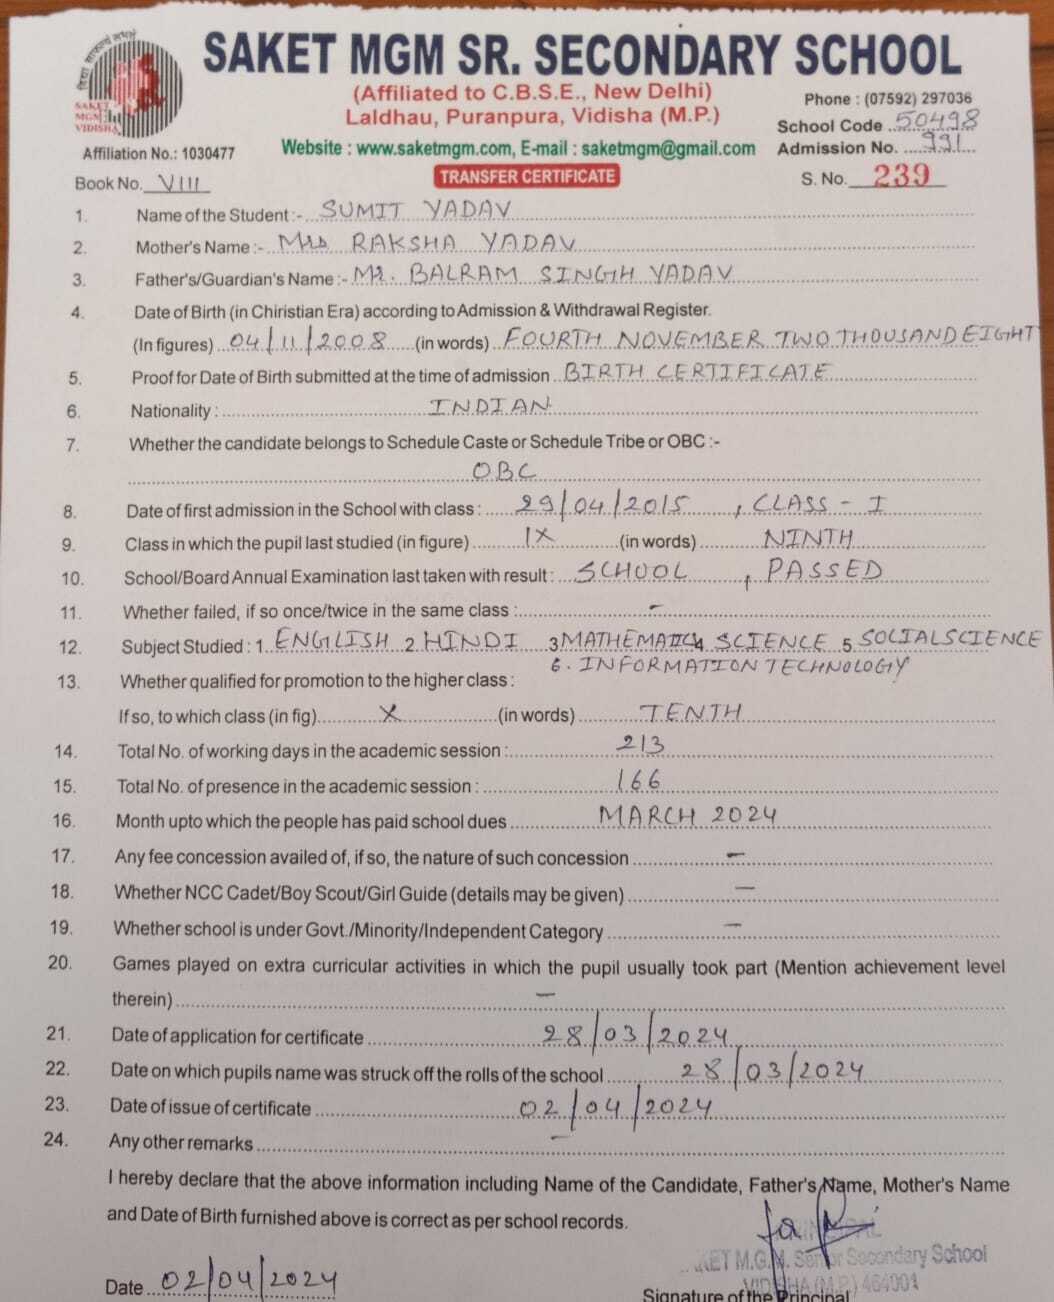 SAKET MGM SR. SECONDARY SCHOOL
(Affiliated to C.B.S.E., New Delhi)
Laldhau, Puranpura, Vidisha (M.P.)
SAKET
MGM
VIDISHA
Phone : (07592) 297036
School Code 50498
Affiliation No.: 1030477
Website : www.saketmgm.com, E-mail : saketmgm@gmail.com
Admission No. 991
Book No. VIII
TRANSFER CERTIFICATE
S. No. 239
1. Name of the Student :- SUMIT YADAV
2. Mother's Name :- Mrs RAKSHA YADAV
3. Father's/Guardian's Name :- Mr. BALRAM SINGH YADAV
4. Date of Birth (in Chiristian Era) according to Admission & Withdrawal Register.
(In figures) 04/11/2008 (in words) FOURTH NOVEMBER TWO THOUSAND EIGHT
5. Proof for Date of Birth submitted at the time of admission BIRTH CERTIFICATE
6. Nationality : INDIAN
7. Whether the candidate belongs to Schedule Caste or Schedule Tribe or OBC :-
OBC
8. Date of first admission in the School with class : 29/04/2015 , CLASS - I
9. Class in which the pupil last studied (in figure) IX (in words) NINTH
10. School/Board Annual Examination last taken with result : SCHOOL , PASSED
11. Whether failed, if so once/twice in the same class : -
12. Subject Studied : 1 ENGLISH 2 HINDI 3 MATHEMATICS 4 SCIENCE 5 SOCIAL SCIENCE
6. INFORMATION TECHNOLOGY
13. Whether qualified for promotion to the higher class :
If so, to which class (in fig) X (in words) TENTH
14. Total No. of working days in the academic session : 213
15. Total No. of presence in the academic session : 166
16. Month upto which the people has paid school dues MARCH 2024
17. Any fee concession availed of, if so, the nature of such concession -
18. Whether NCC Cadet/Boy Scout/Girl Guide (details may be given) -
19. Whether school is under Govt./Minority/Independent Category -
20. Games played on extra curricular activities in which the pupil usually took part (Mention achievement level
therein) -
21. Date of application for certificate 28/03/2024
22. Date on which pupils name was struck off the rolls of the school 28/03/2024
23. Date of issue of certificate 02/04/2024
24. Any other remarks -
I hereby declare that the above information including Name of the Candidate, Father's Name, Mother's Name
and Date of Birth furnished above is correct as per school records.
PRINCIPAL
KET M.G.M. Senior Secondary School
VIDISHA (M.P.) 464001
Date 02/04/2024
Signature of the Principal